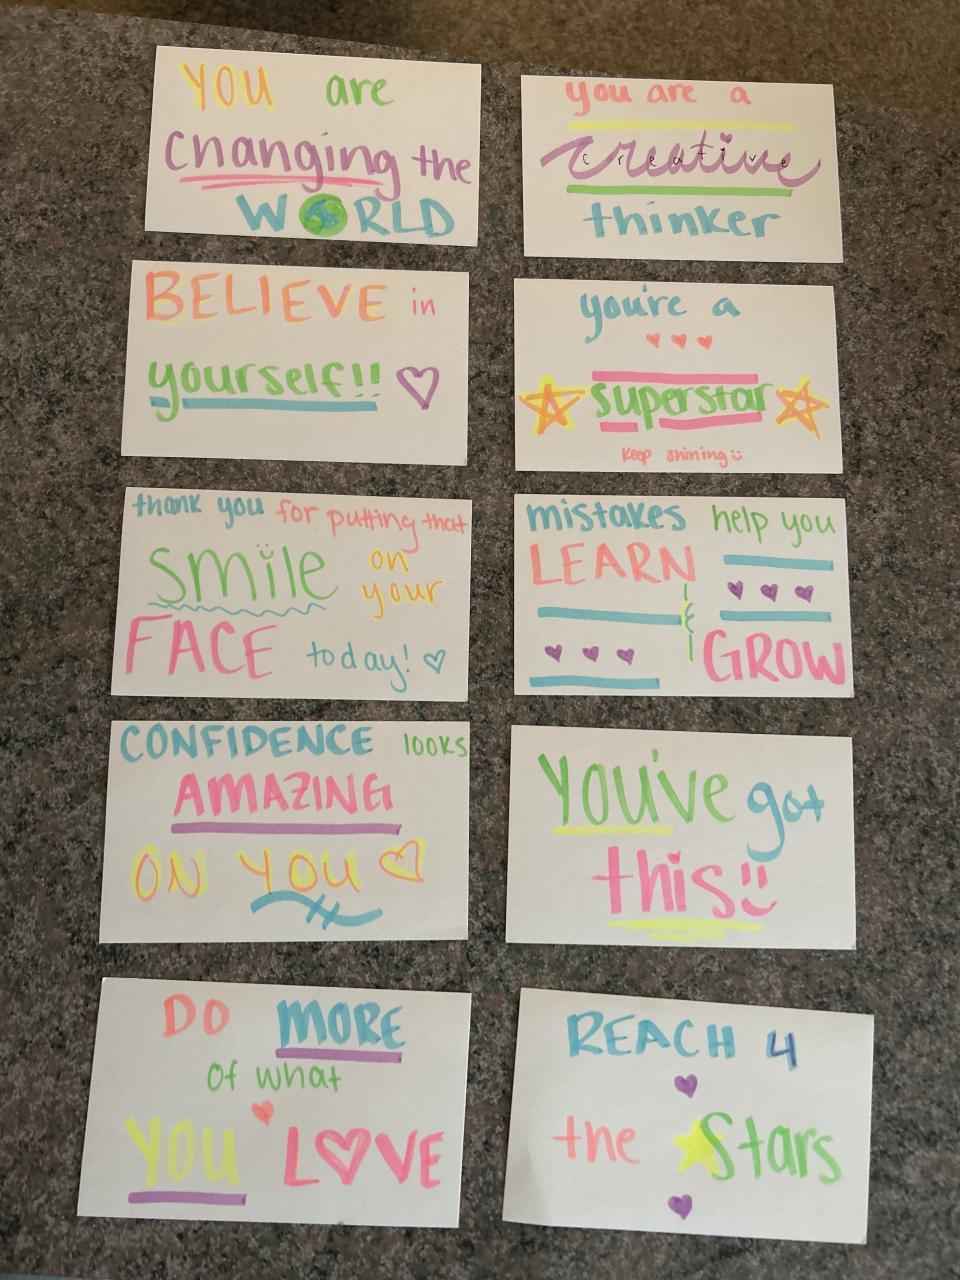 YOU are
changing the
WORLD
you are a
creative
creative
thinker
BELIEVE in
yourself!!
you're a
superstar
keep shining
thank you for putting that
smile on
your
FACE today!
mistakes help you
LEARN
&
GROW
CONFIDENCE looks
AMAZING
ON YOU
YOU'VE got
this
DO MORE
of what
YOU LOVE
REACH 4
the Stars